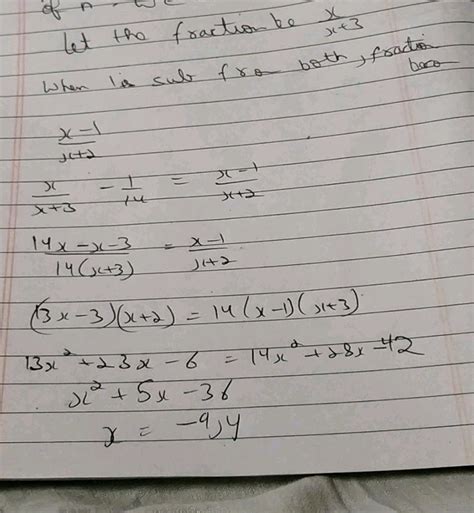 let the fraction be x/x+3
When 1 is sub fro both, fraction
x-1/x+2
x/x+3 - 1/14 = x-1/x+2
14x-x-3/14(x+3) = x-1/x+2
(13x-3)(x+2) = 14(x-1)(x+3)
13x²+23x-6 = 14x²+28x-42
x²+5x-36
x = -9, 4